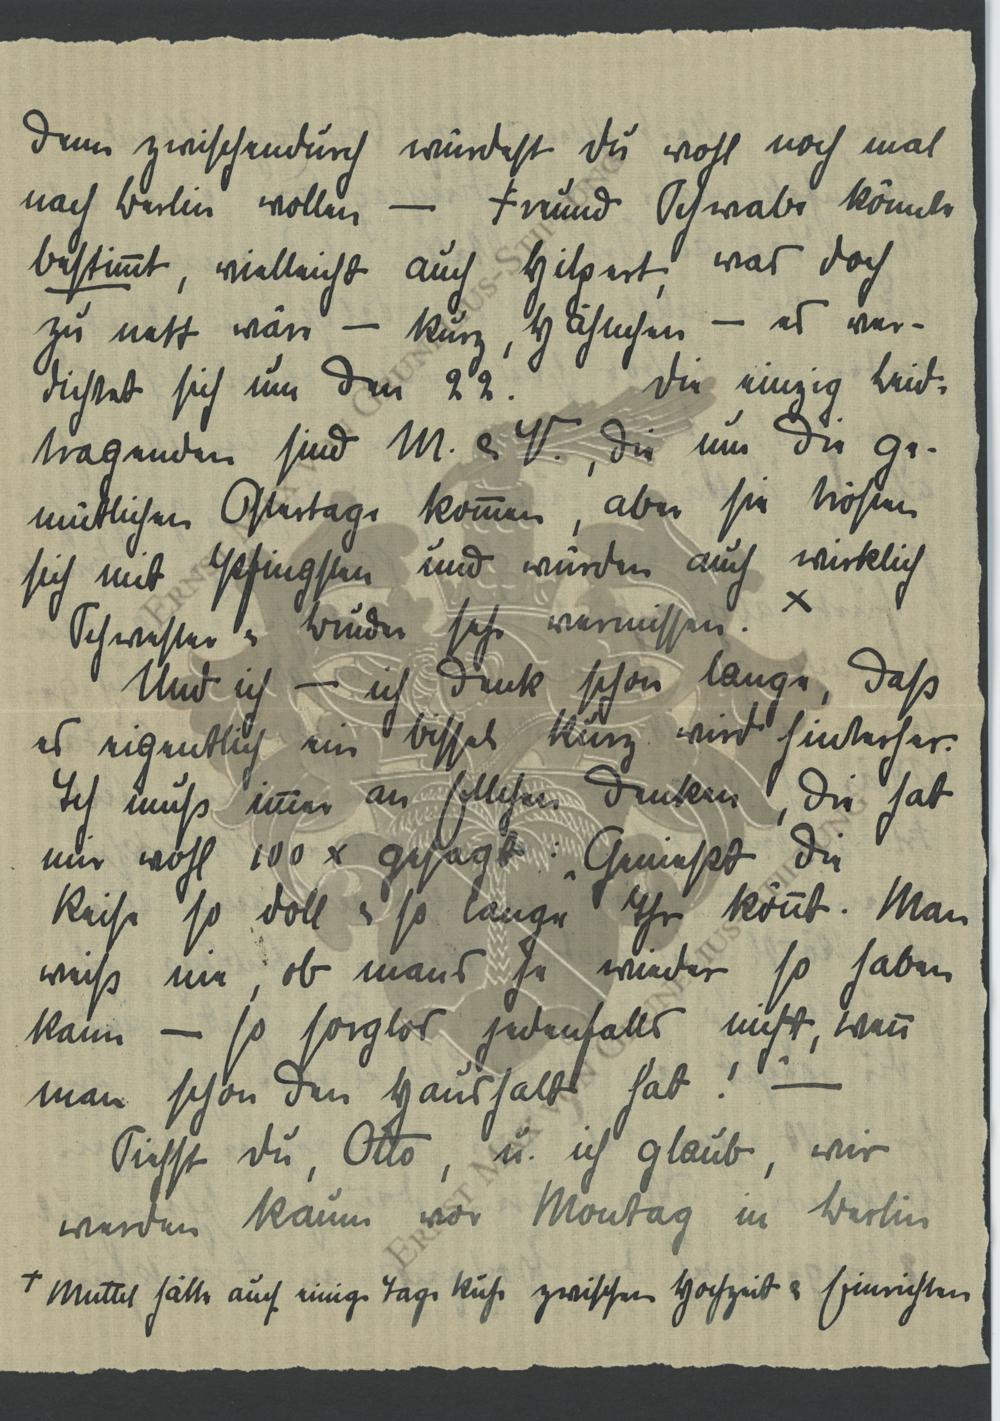 Denn zwischendurch würdest Du wohl noch mal
nach Berlin wollen — Freund Schwabe könnte
bestim̅t, vielleicht auch Hilpert, was doch
zu nett wäre — kurz, Hähnchen — es ver-
dichtet sich um den 22. Die einzig Leid-
tragenden sind M. & V., die um die ge-
mütlichen Ostertage kom̅en, aber sie trösten
sich mit Pfingsten und würden auch wirklich
Schwester & Bruder sehr vermissen. x
Und ich — ich denk schon lange, daß
es eigentlich ein bissel kurz wird hinterher.
Ich muß im̅er an denken, die hat
mir wohl 100 x gesagt: „Genießt die
Reise so doll & so lange Ihr kön̅t. Man
weiß nie, ob mans je wieder so haben
kann — so sorglos jedenfalls nicht, wen̅
man schon den Haushalt hat!" —
Siehst du, Otto, u. ich glaub, wir
werden kaum vor Montag in Berlin
+ Muttel hätte auch einige Tage Ruhe zwischen Hochzeit & Einrichten
ERNST MAX VON GRUNELIUS-STIFTUNG
ERNST MAX VON GRUNELIUS-STIFTUNG